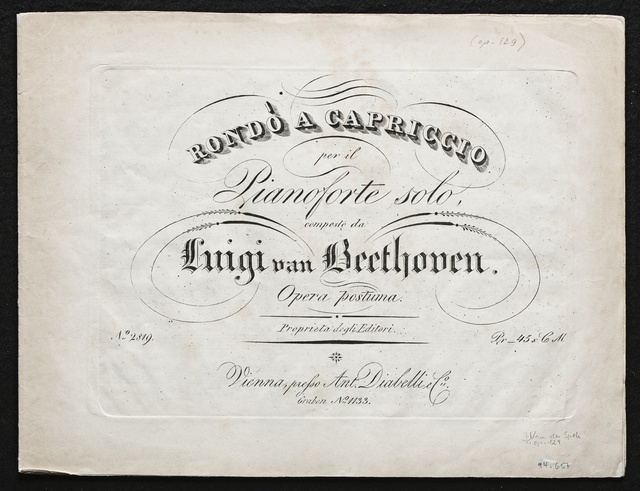 (op. 129)
RONDÒ A CAPRICCIO
per il
Pianoforte solo,
composto da
Luigi van Beethoven.
Opera postuma.
Proprietà degli Editori.
No. 2819.
Pr. 45 x C M
Vienna, presso Ant. Diabelli e Co.
Graben No. 1133.
op. 129